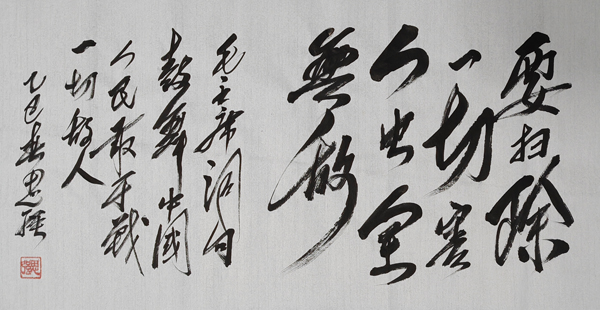 要扫除
一切害
人虫全
無敌
毛主席词句
鼓舞中國
人民敢于战
一切敌人
乙巳春思强